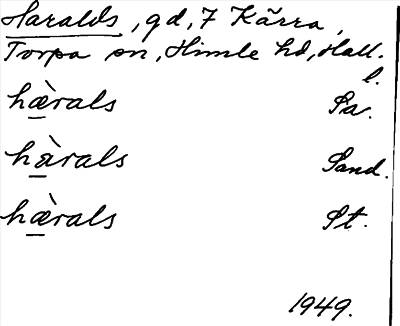 Haralds, gd, 7 Kärra,
Torpa sn, Himle hd, Hall.
l.
hæ̀rals Sa.
hàrals Sand.
hæ̀rals St.
1949.